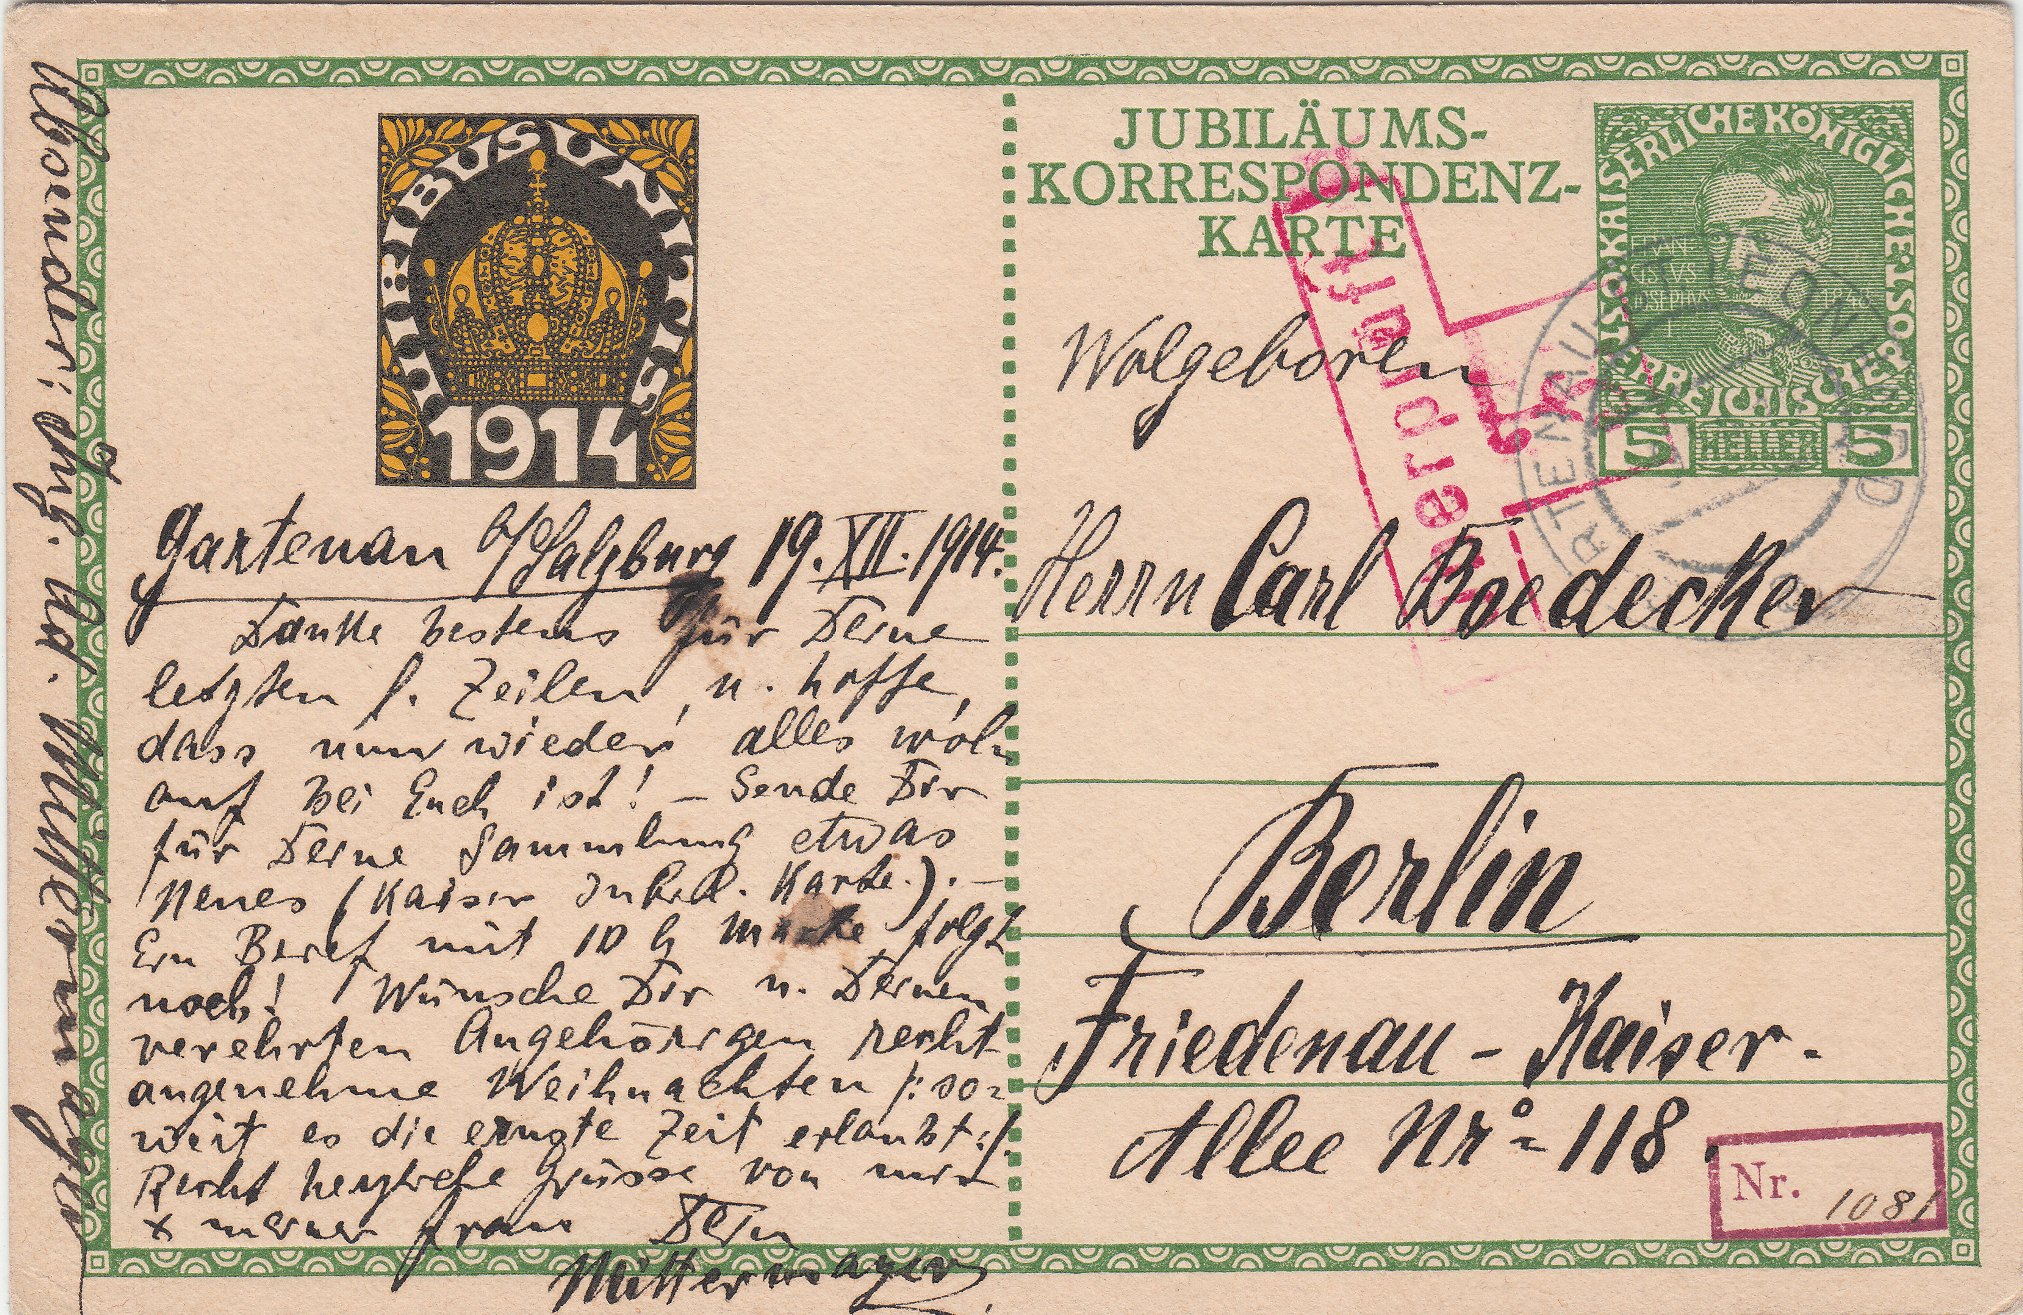 Absender: Ing. Ad. Müttermayer
VIRIBUS UNITIS
1914
Gartenau b/Salzburg 19. XII. 1914.
Danke bestens für Deine
letzten l. Zeilen, u. hoffe,
dass nun wieder alles wol
auf bei Euch ist! – Sende Dir
für Deine Sammlung etwas
Neues (Kaiser Jubil. Karte.). –
Ein Brief mit 10 h Marke folgt
noch! Wünsche Dir u. Deinen
verehrten Angehörigen recht
angenehme Weihnachten /: so=
weit es die ernste Zeit erlaubt :/.
Recht herzliche Grüsse von mir
+ meiner Frau Dein
Müttermayer
JUBILÄUMS-
KORRESPONDENZ-
KARTE
KAISERLICHE KÖNIGLICHE ÖSTERREICHISCHE POST
5 HELLER 5
Überprüft
GARTENAU-ST. LEONHARD
Wolgeboren
Herrn Carl Boedecker
Berlin
Friedenau - Kaiser-
Allee Nr° = 118.
Nr. 1081